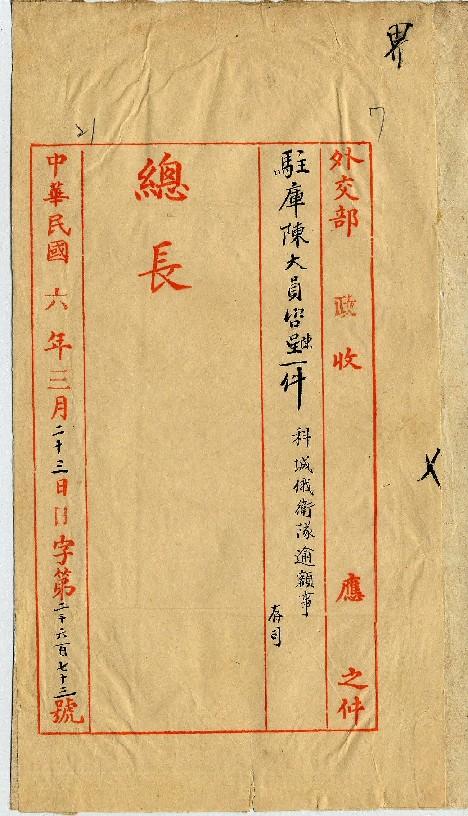 界
外交部 政收 應 之件
駐庫陳大員咨陳一件 科城俄衛隊逾額事
存司
總長
中華民國六年三月二十三日日字第二千六百七十三號